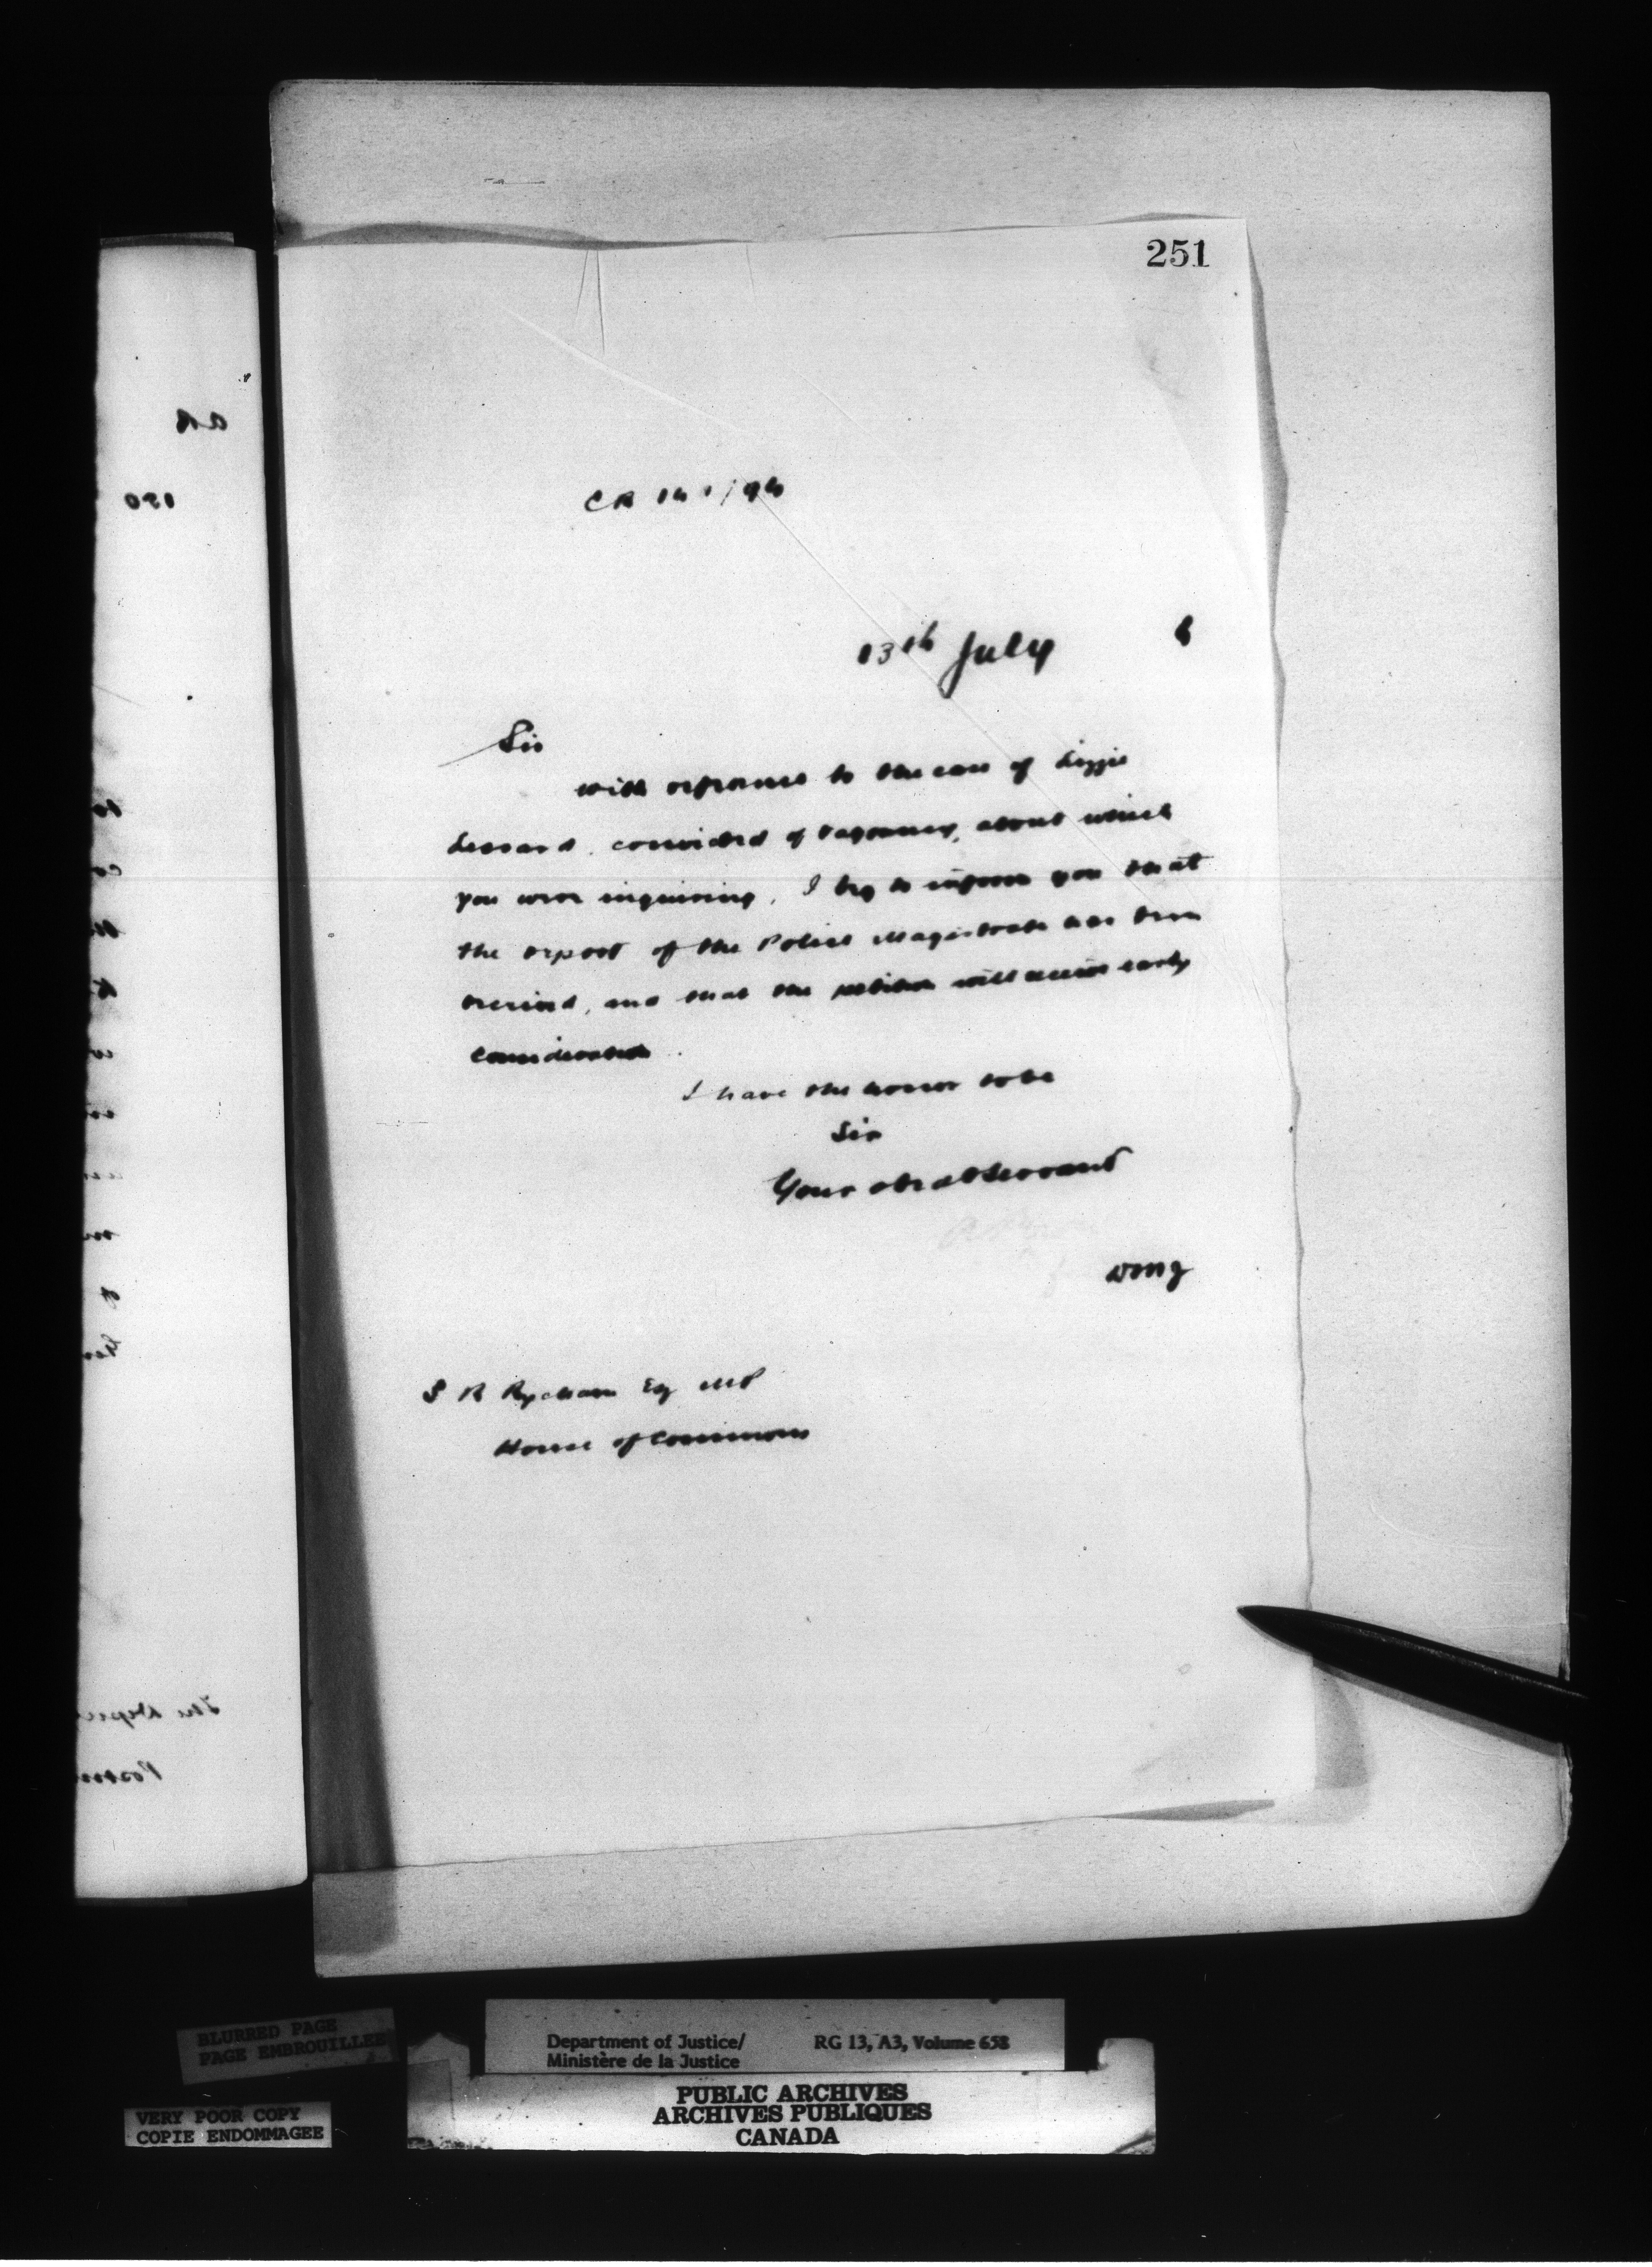 251
CR 141/94
13th July 4
Sir
with reference to the case of Lizzie
Lessard, convicted of vagrancy, about which
you were inquiring, I beg to inform you that
the report of the Police Magistrate has been
received, and that the petition will receive early
consideration.
I have the honor to be
Sir
Your obedt Servant
DMJ
S R Ryckman Esq MP
House of Commons
BLURRED PAGE
PAGE EMBROUILLEE
VERY POOR COPY
COPIE ENDOMMAGEE
Department of Justice/ RG 13, A3, Volume 658
Ministère de la Justice
PUBLIC ARCHIVES
ARCHIVES PUBLIQUES
CANADA